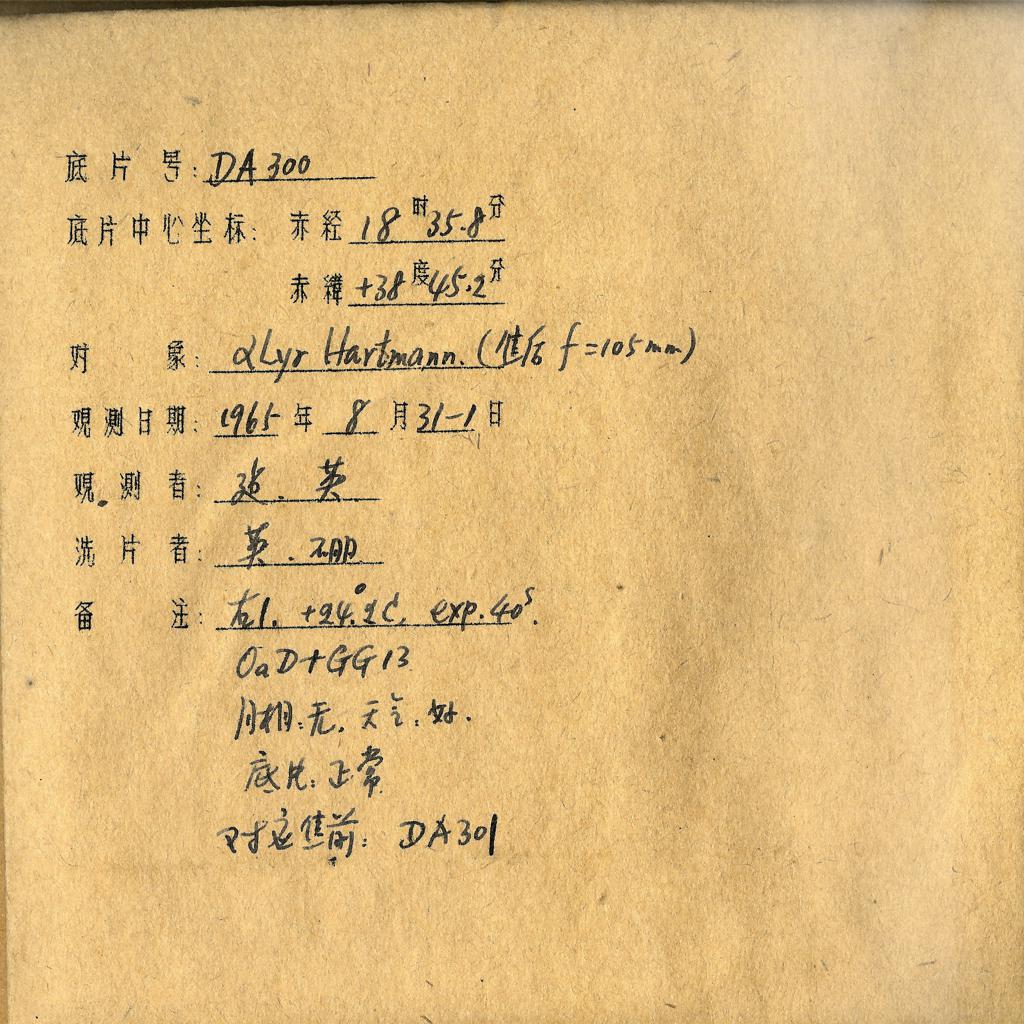 底片号: DA300
底片中心坐标: 赤经 18时35.8分
赤緯 +38度45.2分
对象: αLyr Hartmann. (焦后 f=105mm)
观测日期: 1965年 8月31-1日
观测者: 英
洗片者: 英.
备注: 右1. +24.°2C, exp.40s.
OaD+GG13
月相:无. 天气:好.
底片:正常
对应焦前: DA301